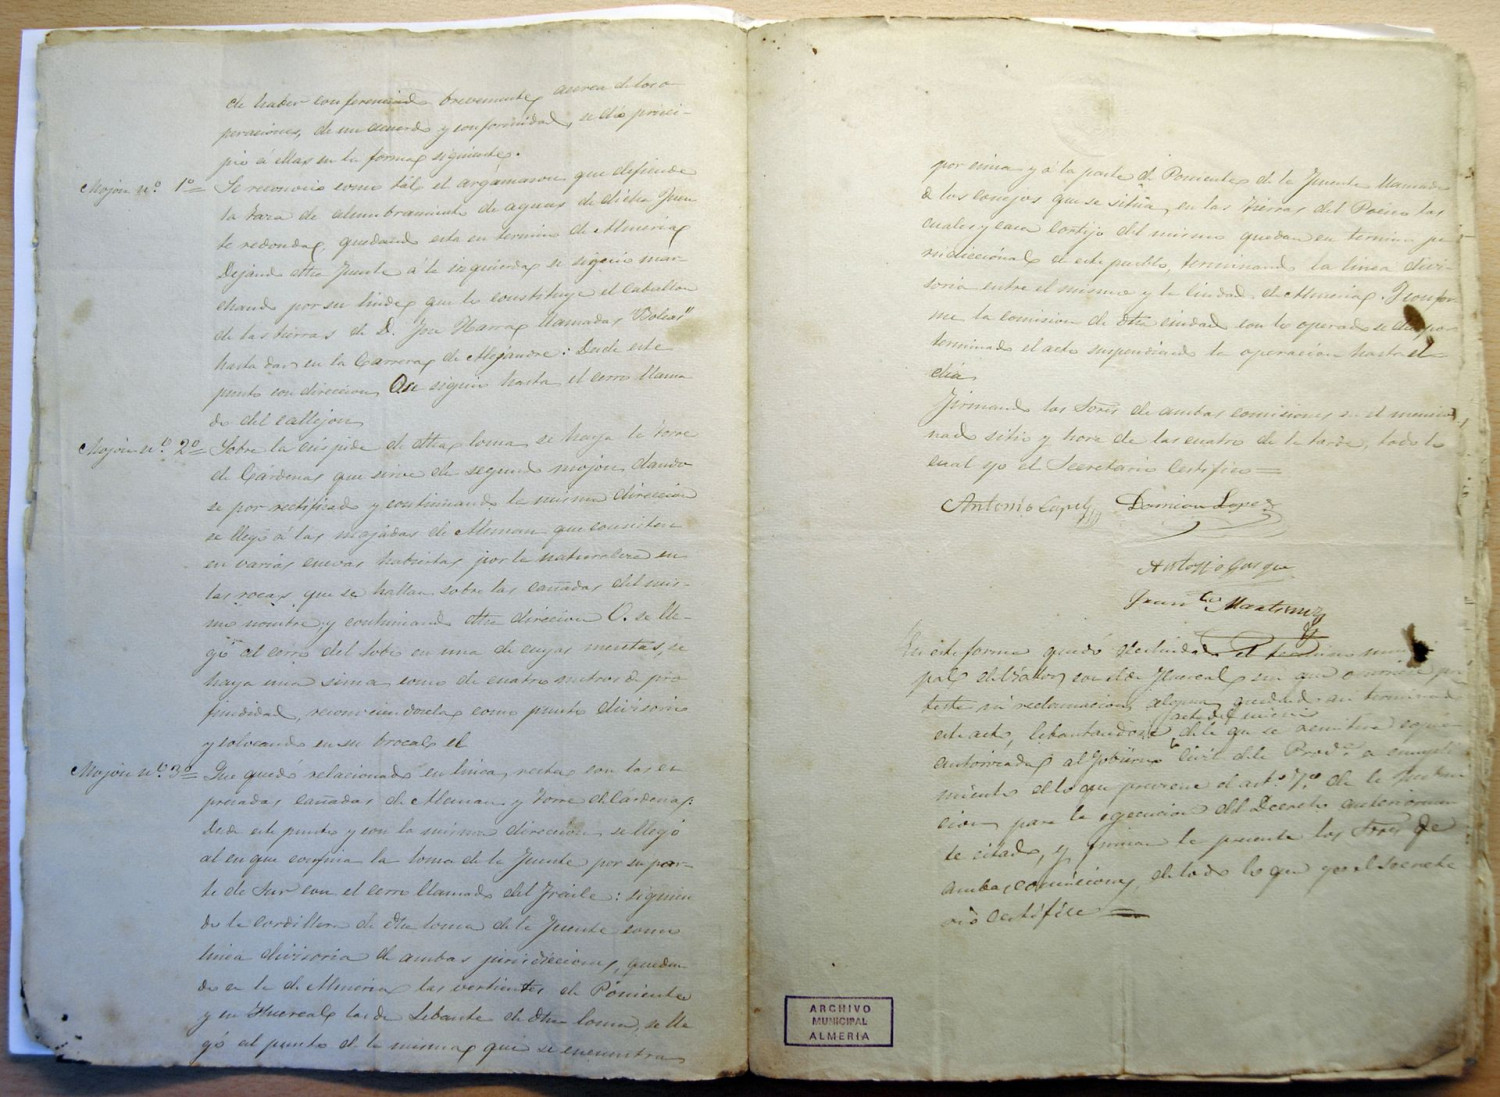 de haber conferenciado brevemente, acerca de las o-
peraciones, de un acuerdo y conformidad, se dió princi-
pio á ellas en la forma siguiente.
Mojon nº 1º = Se reconoció como tál el argamason que defiende
la taza de alumbramiento de aguas de dicha Fuen
te redonda, quedando esta en termino de Almeria,
Dejando dha fuente á la izquierda se siguió mar-
chando por su linde, que lo constituye el Caballon
de las tierras de D. llamadas "Boleas"
hasta dar en la Carrera de Alejandre: Desde este
punto con direccion O se siguió hasta el cerro llama
do del Callejon
Mojon nº 2º = Sobre la cúspide de dha loma se haya la torre
de Cárdenas que sirve de segundo mojon, dando
se por rectificado y continuando la misma direccion
se llegó á las majadas de Aleman que consisten
en varias cuevas habiertas por la naturaleza en
las rocas que se hallan sobre las cañadas del mis-
mo nombre, y continuando dha direccion O. se lle-
gó al cerro del Sobe en una de cuyas mesetas, se
haya una sima como de cuatro metros de pro
fundidad, reconociendosela como punto divisorio
y colocando en su brocal el
Mojon nº 3º = Que quedó relacionado en linea recta con las es
presadas cañadas de Aleman y torre de Cárdenas:
Desde este punto y con la misma direccion se llegó
al en que confina la loma de la Fuente por su par-
te de Sur con el cerro llamado del Fraile: siguien
do la cordillera de dha loma de la Fuente como
linea divisoria de ambas jurisdicciones, quedan
do en la de Almeria las vertientes de Poniente
y en Huercal las de Lebante de dha loma, se lle
gó al punto de la misma que se encuentra
por cima y á la parte de Poniente de la Fuente llamada
de los conejos que se sitúa en las tierras del las
cuales y casa cortijo del mismo quedan en termino ju
risdiccional de este pueblo, terminando la linea divi-
soria entre el mismo y la Ciudad de Almeria. Y confor
me la comision de dha ciudad con lo operado se dió por
terminado el acto suspendiendo la operacion hasta el
dia
Firmando los Sores de ambas comisiones en el mencio
nado sitio y hora de las cuatro de la tarde, todo lo
cual yo el Secretario Certifico =
Antonio Lopez Damian Lopez
Antonio
Franco Martinez
En esta forma quedó deslindado el termino munici
pal de con el de Huercal sin que ocurriera pro
testa ni reclamacion alguna quedando así terminado
este acto, lebantandose acta del mismo de la que se remitirá copia
autorizada al Gobierno Civil de la Provª a cumpli
miento de lo que previene el artº 7º de la Instruc
cion para la ejecucion del Decreto anteriormen
te citado, y firman la presente los Sores de
ambas comisiones, de todo lo que yo el Secreta
rio Certifico =
ARCHIVO
MUNICIPAL
ALMERIA